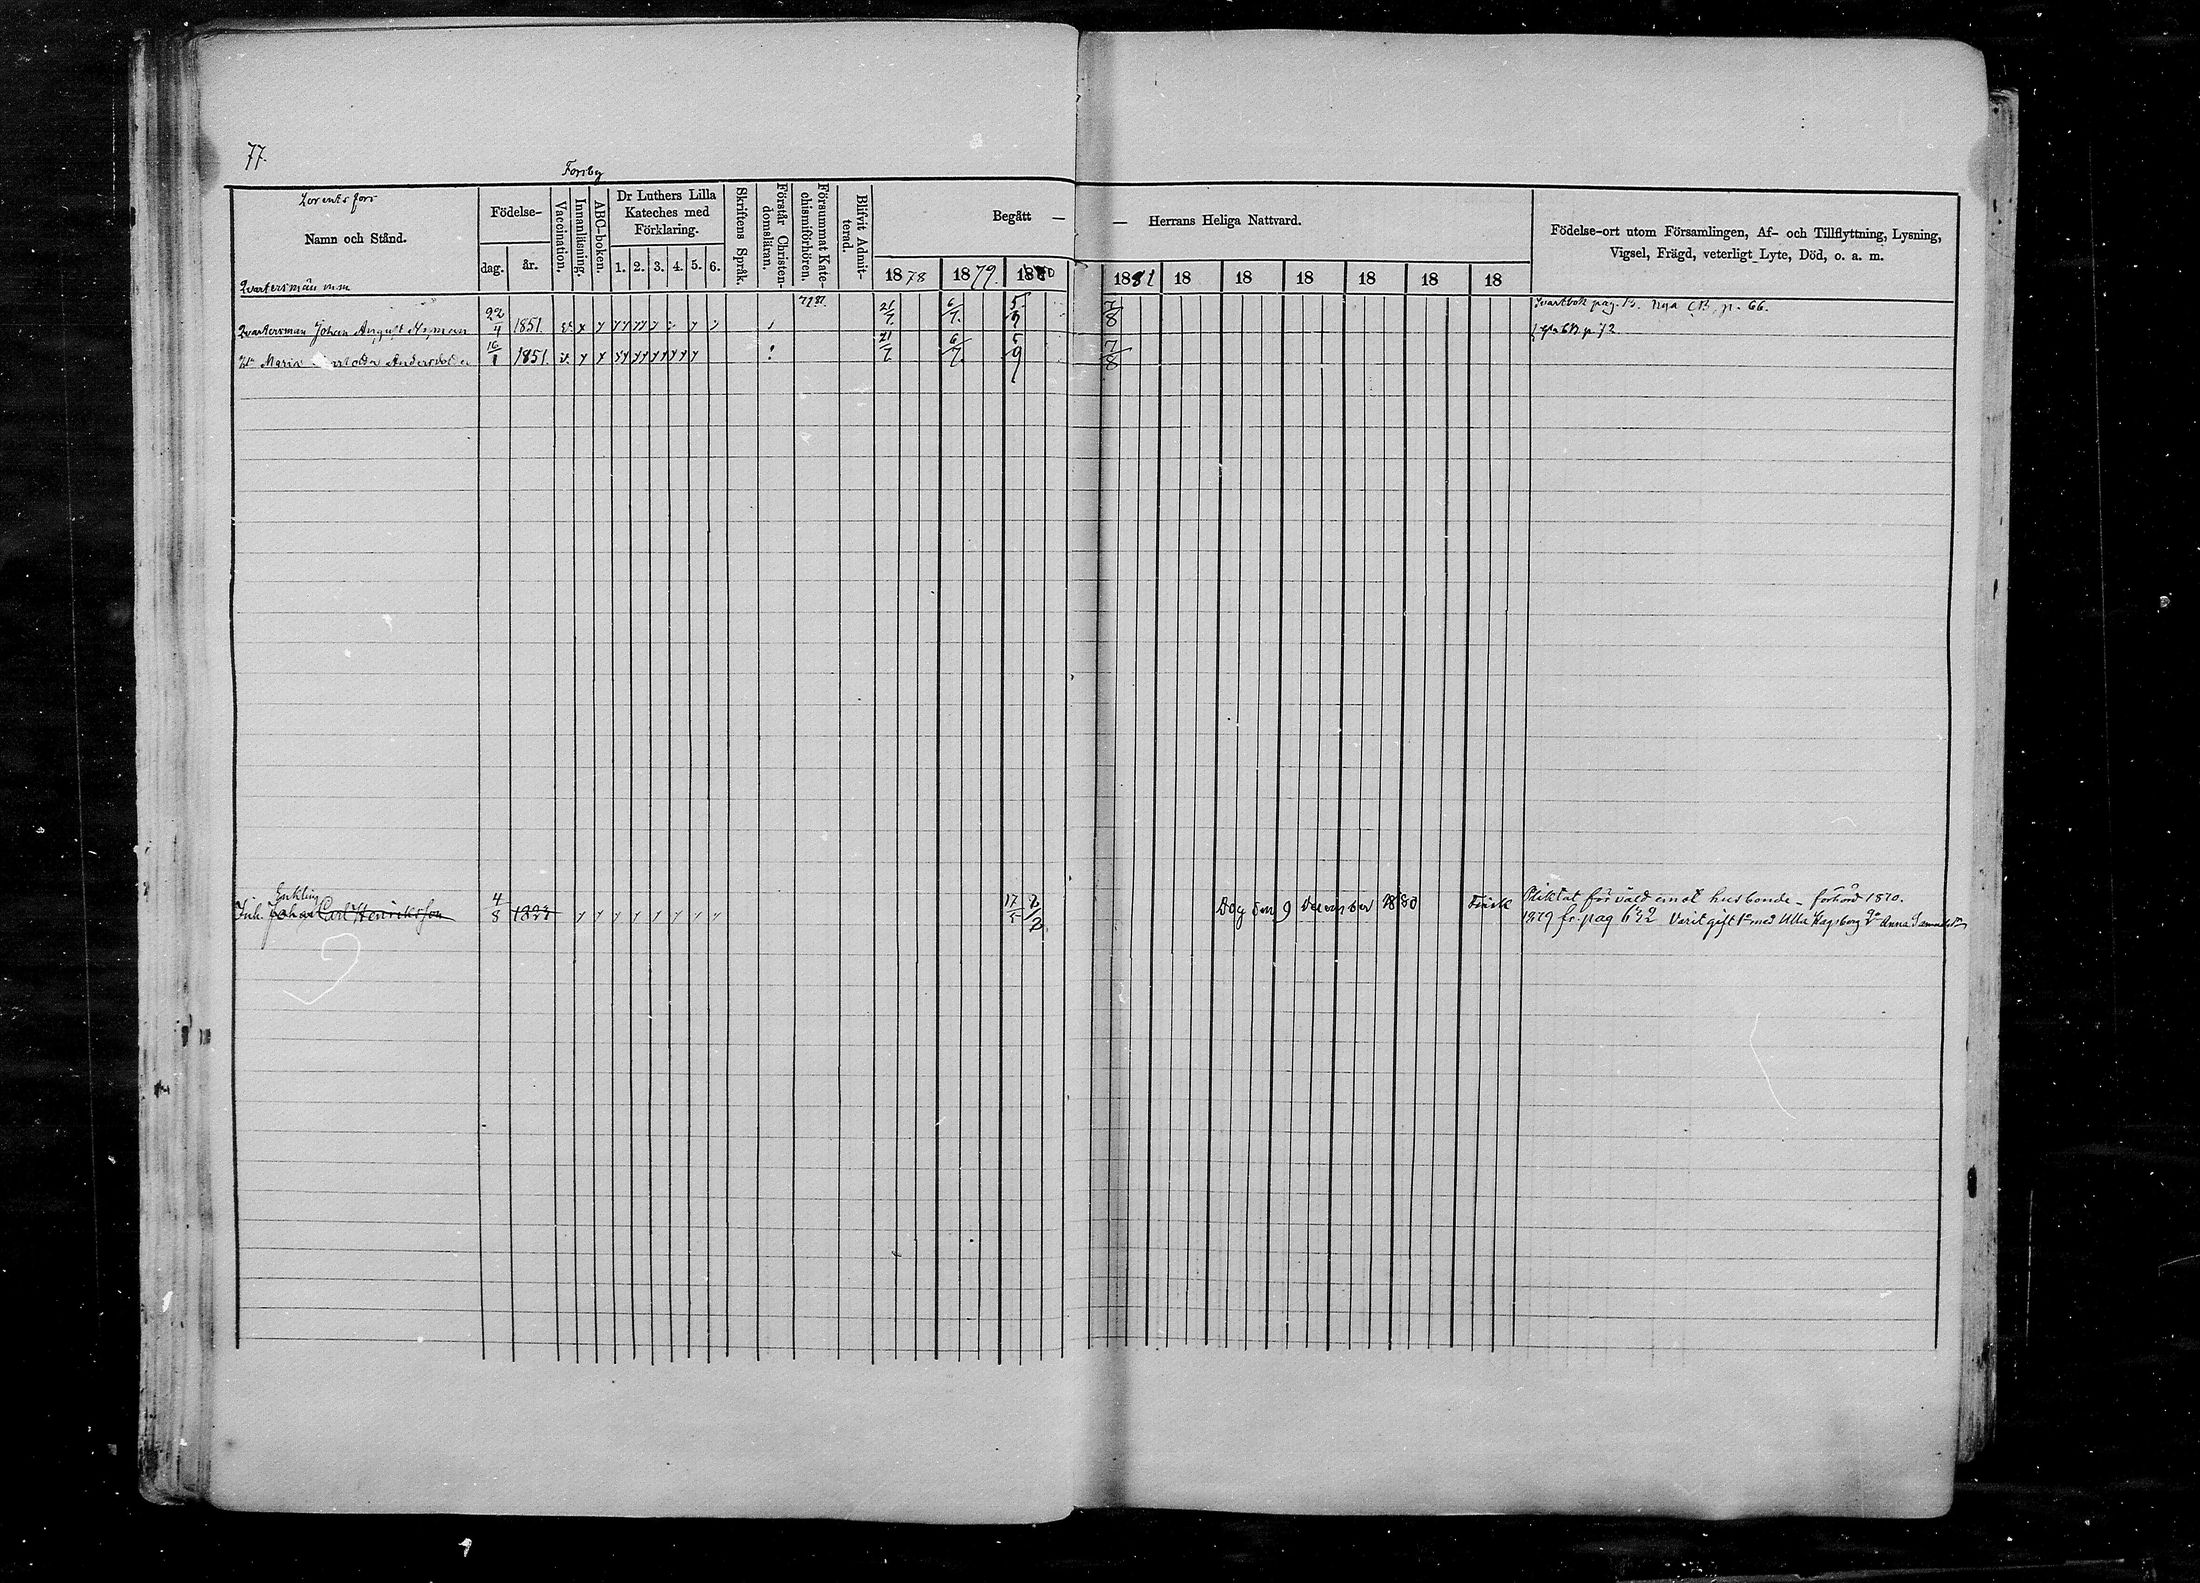 77.
Forsby
Lorents fors
Namn och Stånd.
Qvartersmän m.m
Födelse-
dag.
år.
Vaccination.
Innanläsning.
ABC-boken.
Dr Luthers Lilla
Kateches med
Förklaring.
1. 2. 3. 4. 5. 6.
Skriftens Språk.
Förstår Christen-
domsläran.
Försummat Kate-
chismiförhören.
Blifvit Admit-
terad.
Begått — — Herrans Heliga Nattvard.
1878 1879. 1880 1881 18 18 18 18 18 18
Födelse-ort utom Församlingen, Af- och Tillflyttning, Lysning,
Vigsel, Frägd, veterligt Lyte, Död, o. a. m.
Svartbok pag. nya CB. p. 66.
Qvartersman Johan August 22/4 1851. 21/7. 6/7. 5/9 7/8
Maria Andersdotter 16/1 1851. 21/7 6/7. 5/9 7/8
Enkling
Inh. Johan Carl Henriksson 4/8 17/5 Dog den 9 December 1880 Frisk
Pliktat för våld emot husbonde - förhörd 1870.
1879 fr. pag 632 Varit gift 1o med Ulla Hagsberg 2o Anna